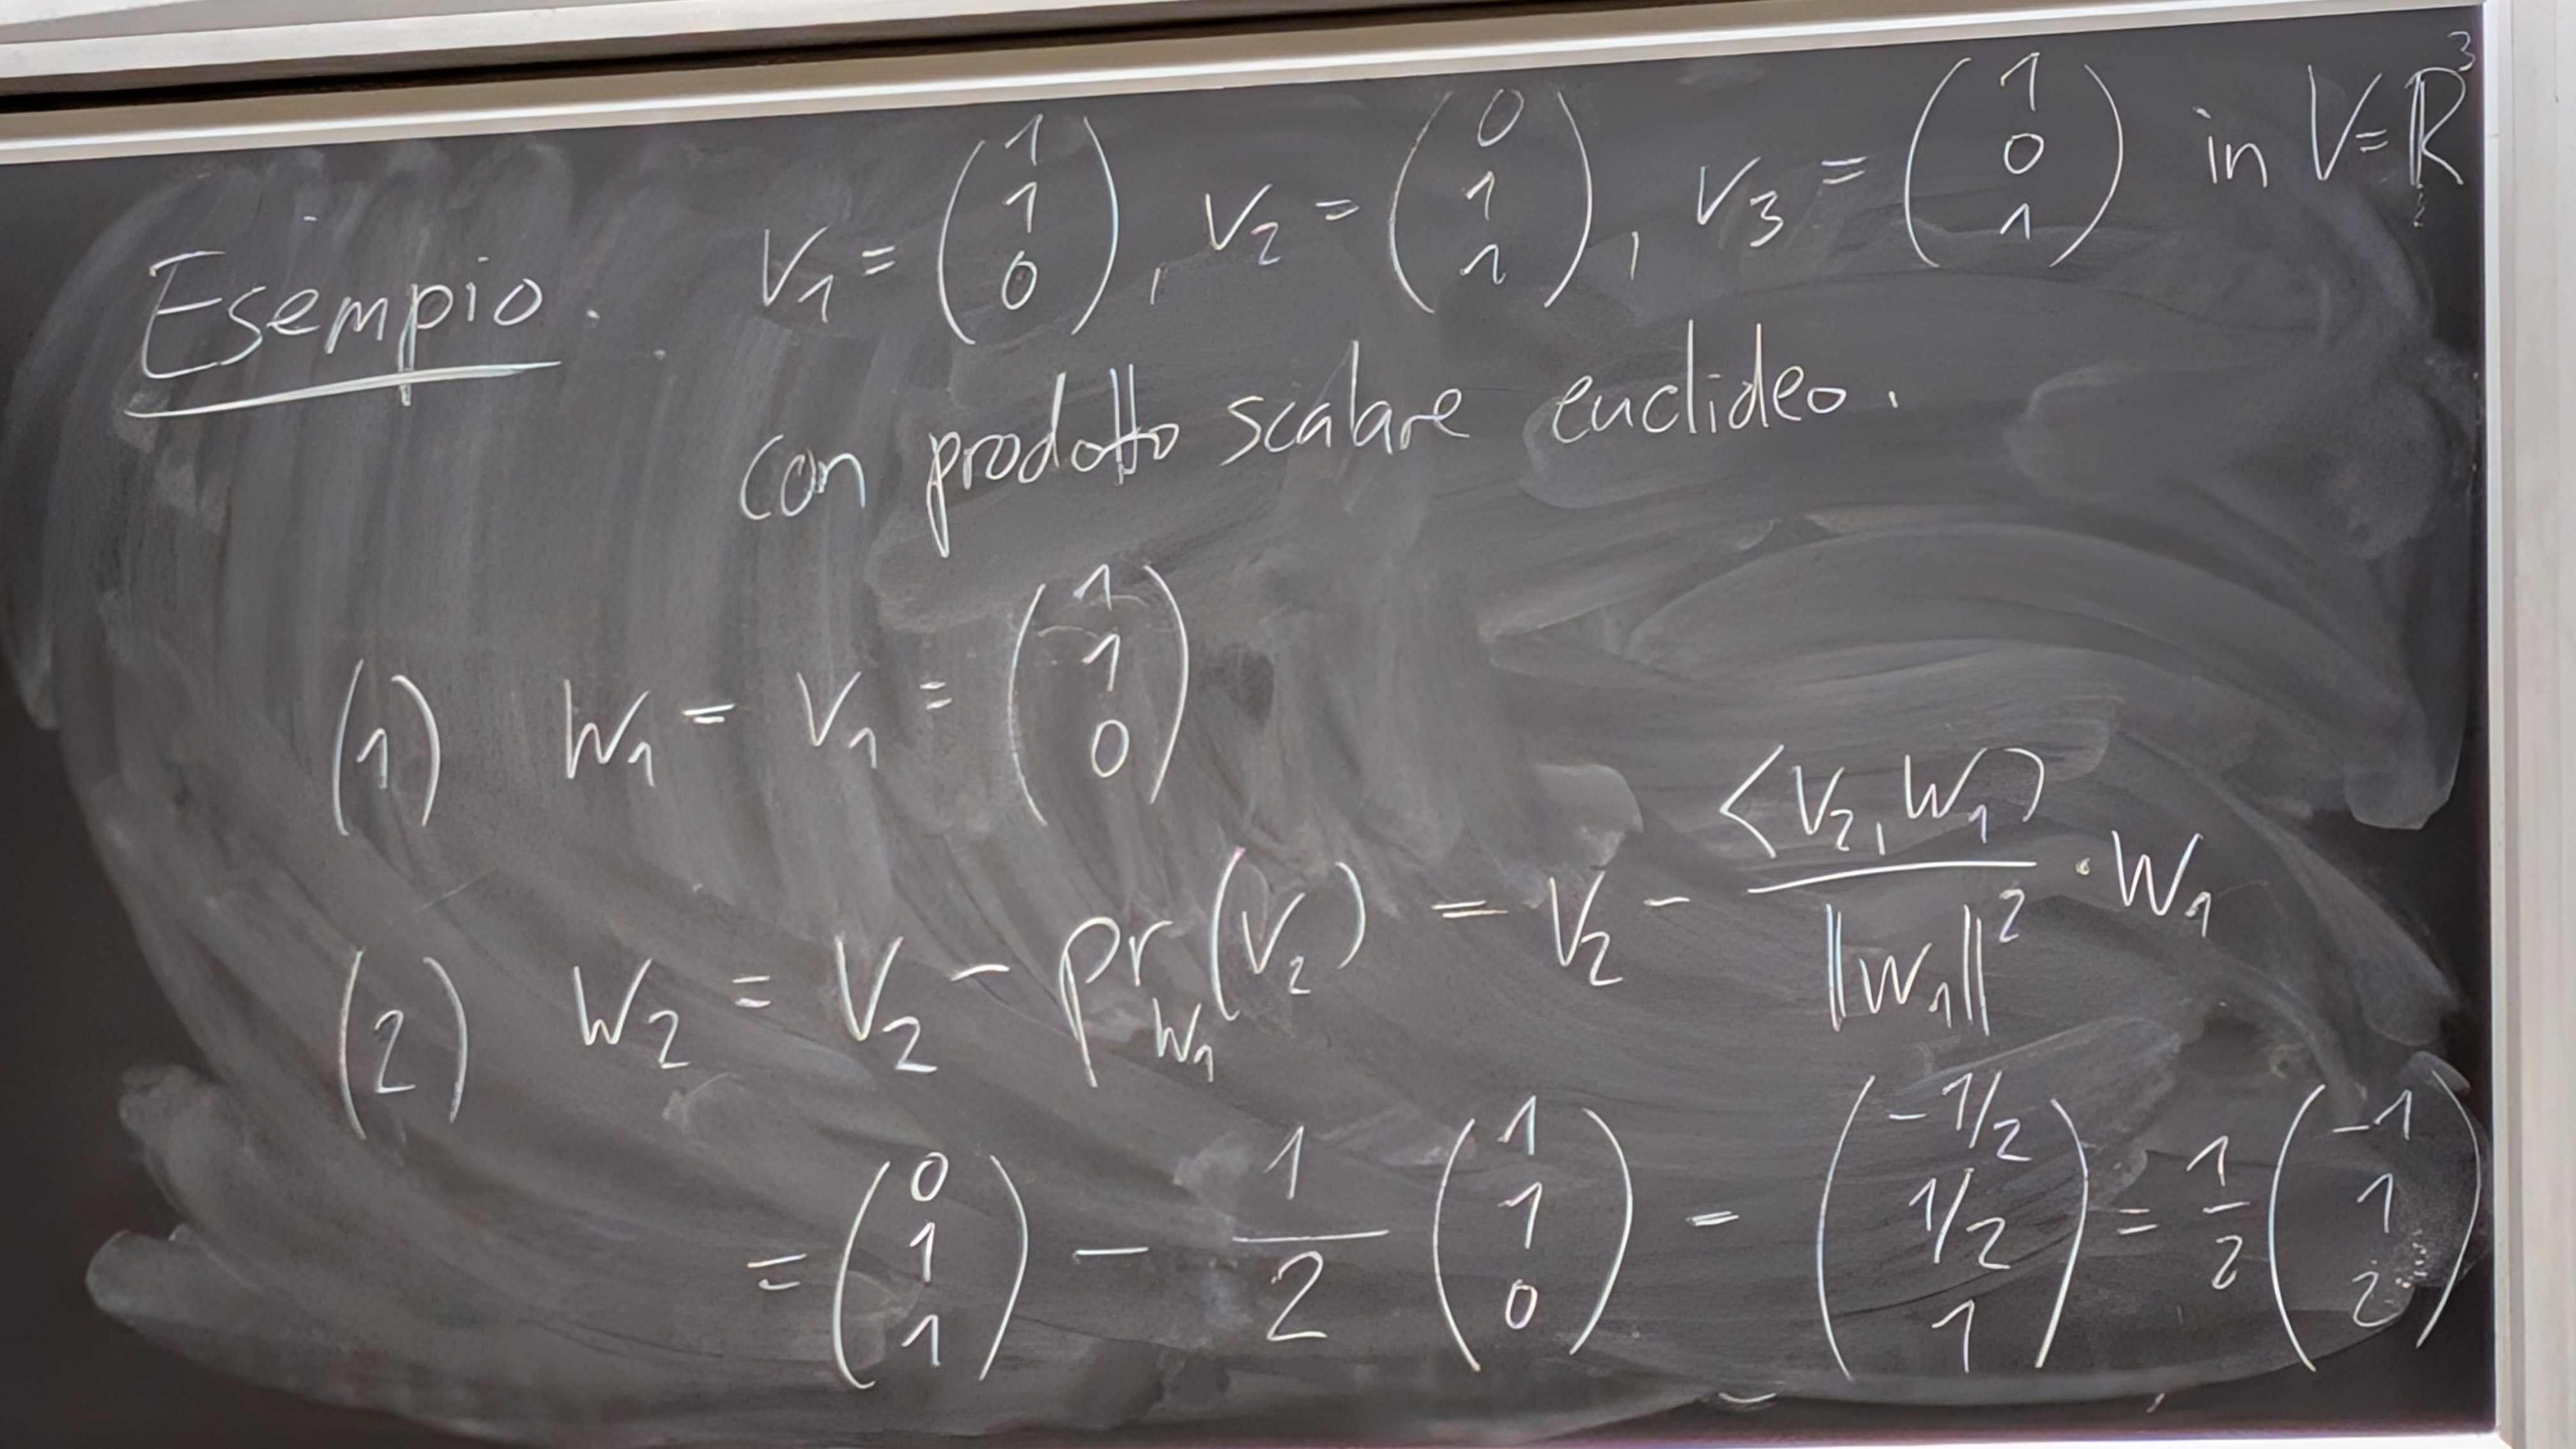 Esempio. V₁ = (1 1 0), V₂ = (0 1 1), V₃ = (1 0 1) in V = ℝ³
con prodotto scalare euclideo.
(1) W₁ = V₁ = (1 1 0)
(2) W₂ = V₂ − pr_W₁(V₂) = V₂ − <V₂, W₁>/‖W₁‖² · W₁
= (0 1 1) − 1/2 (1 1 0) = (−1/2 1/2 1) = 1/2 (−1 1 2)